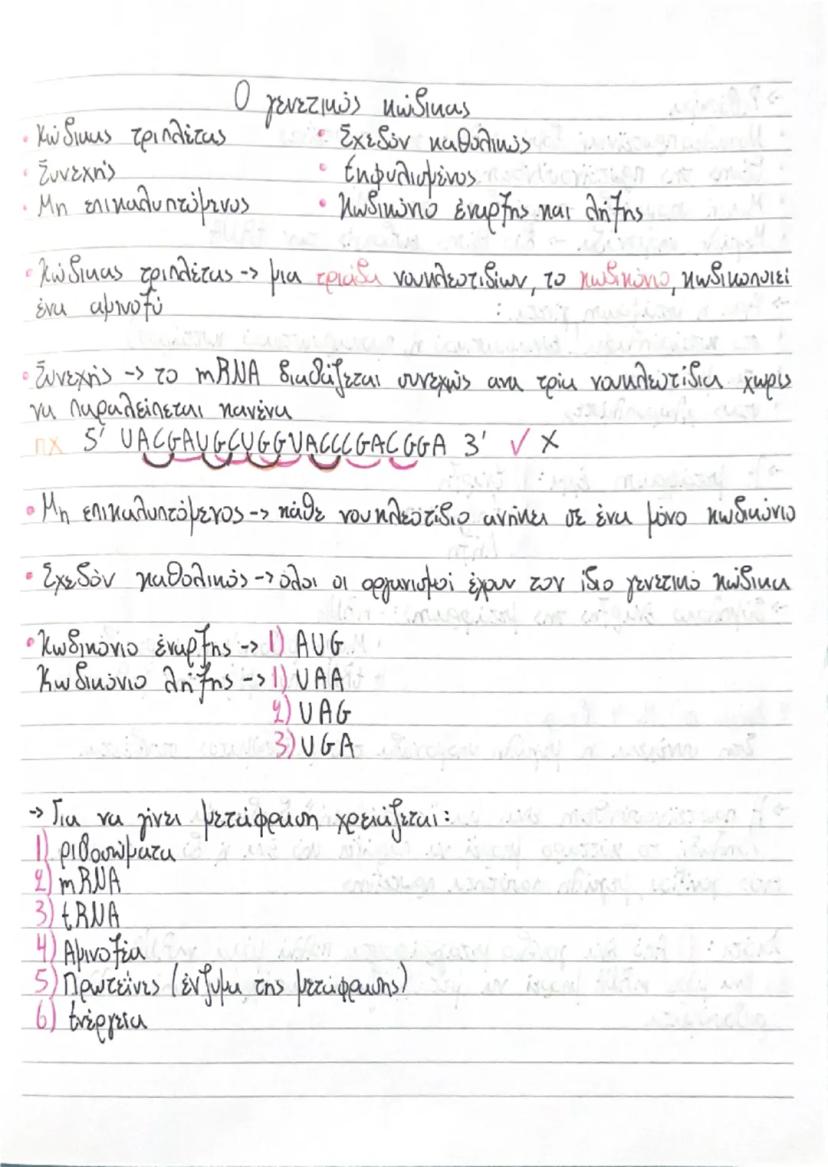 Ο γενετικός κώδικας
• Κώδικας τριπλέτας
• Συνεχής
• Μη επικαλυπτόμενος
• Σχεδόν καθολικός
• Εκφυλισμένος
• Κωδικόνιο έναρξης και λήξης
• Κώδικας τριπλέτας -> μια τριάδα νουκλεοτιδίων, το κωδικόνιο, κωδικοποιεί
ένα αμινοξύ
• Συνεχής -> το mRNA διαβάζεται συνεχώς ανα τρία νουκλεωτίδια χωρις
να παραλείπεται κανένα
πχ 5' UACGAUGCUGGUACCCGACGGA 3' ✓ X
• Μη επικαλυπτόμενος -> κάθε νουκλεοτίδιο ανήκει σε ένα μόνο κωδικόνιο
• Σχεδόν καθολικός -> όλοι οι οργανισμοί έχουν τον ίδιο γενετικό κώδικα
• Κωδικόνιο έναρξης -> 1) AUG
Κωδικόνιο λήξης -> 1) UAA
2) UAG
3) UGA
-> Για να γίνει μετάφραση χρειάζεται:
1) ριβοσώματα
2) mRNA
3) tRNA
4) Αμινοξέα
5) Πρωτεϊνες (ένζυμα της μετάφρασης)
6) Ενέργεια